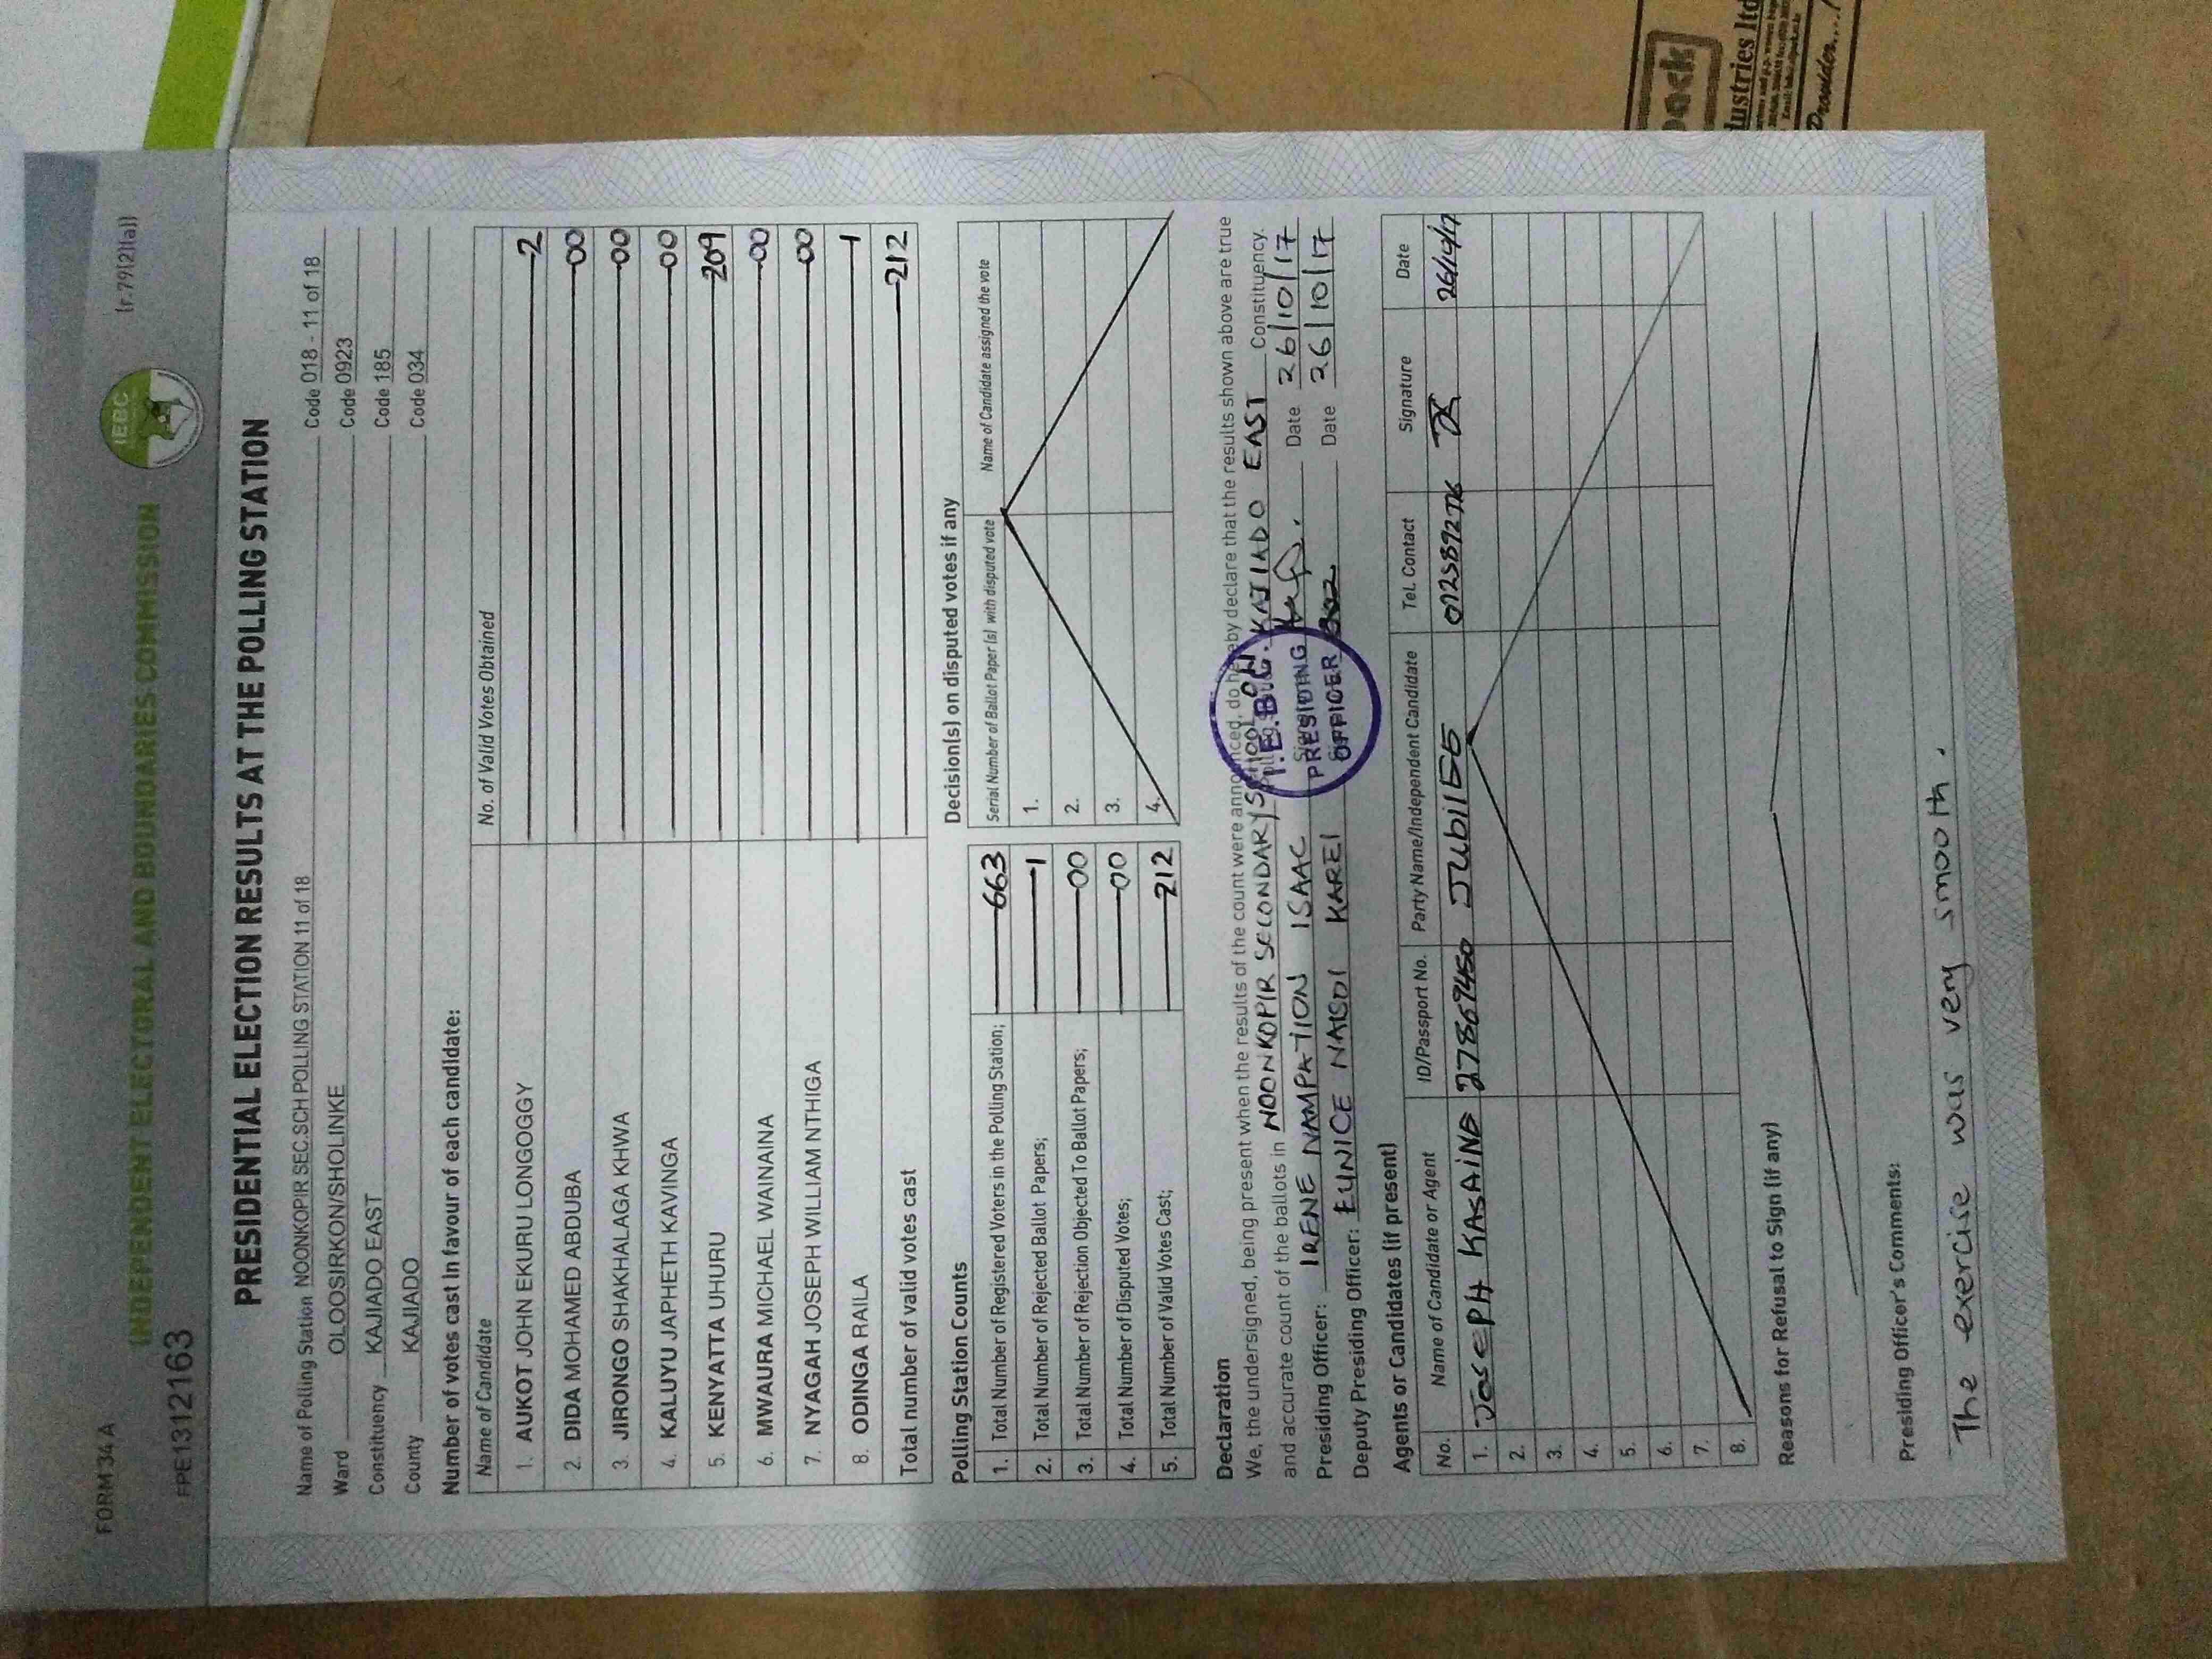 FORM 34 A
(r.79(2)(a))
INDEPENDENT ELECTORAL AND BOUNDARIES COMMISSION
IEBC
FPE1312163
PRESIDENTIAL ELECTION RESULTS AT THE POLLING STATION
Name of Polling Station NOONKOPIR SEC.SCH POLLING STATION 11 of 18 Code 018 - 11 of 18
Ward OLOOSIRKON/SHOLINKE Code 0923
Constituency KAJIADO EAST Code 185
County KAJIADO Code 034
Number of votes cast in favour of each candidate:
Name of Candidate No. of Valid Votes Obtained
1. AUKOT JOHN EKURU LONGOGGY 2
2. DIDA MOHAMED ABDUBA 00
3. JIRONGO SHAKHALAGA KHWA 00
4. KALUYU JAPHETH KAVINGA 00
5. KENYATTA UHURU 209
6. MWAURA MICHAEL WAINAINA 00
7. NYAGAH JOSEPH WILLIAM NTHIGA 00
8. ODINGA RAILA 1
Total number of valid votes cast 212
Polling Station Counts
1. Total Number of Registered Voters in the Polling Station; 663
2. Total Number of Rejected Ballot Papers; 1
3. Total Number of Rejection Objected To Ballot Papers; 00
4. Total Number of Disputed Votes; 00
5. Total Number of Valid Votes Cast; 212
Decision(s) on disputed votes if any
Serial Number of Ballot Paper (s) with disputed vote Name of Candidate assigned the vote
1.
2.
3.
4.
Declaration
We, the undersigned, being present when the results of the count were announced, do hereby declare that the results shown above are true
and accurate count of the ballots in NOONKOPIR SECONDARY SCHOOL KAJIADO EAST Constituency.
Presiding Officer: IRENE NAMPATION ISAAC Date 26/10/17
Deputy Presiding Officer: EUNICE NAISOI KAREI Date 26/10/17
I.E.B.C.
PRESIDING
OFFICER
Agents or Candidates (if present)
No. Name of Candidate or Agent ID/Passport No. Party Name/Independent Candidate Tel. Contact Signature Date
1. JOSEPH KASAINE 27869450 JUBILEE
2.
3.
4.
5.
6.
7.
8.
Reasons for Refusal to Sign (if any)
Presiding Officer's Comments:
The exercise was very smooth.
ustries ltd
Provider....!